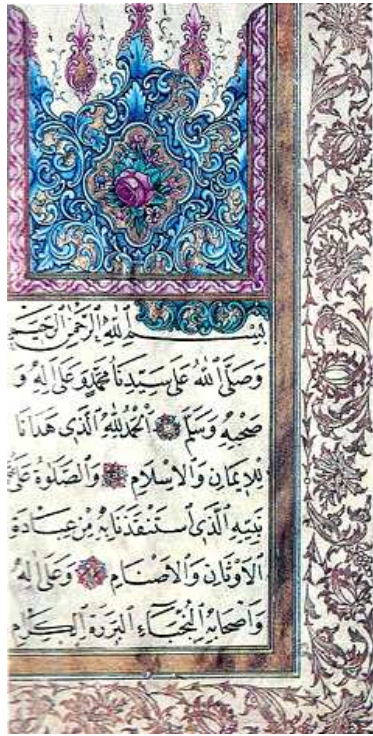 بِسْمِ اللهِ الرَّحْمٰنِ الرَّحِيمِ
وَصَلَّى اللهُ عَلَى سَيِّدِنَا مُحَمَّدٍ وَعَلَى اٰلِهِ وَ
صَحْبِهِ وَسَلَّمَ اَلْحَمْدُ لِلّٰهِ الَّذِي هَدَانَا
لِلْاِيمَانِ وَالْاِسْلَامِ وَالصَّلٰوةُ عَلَى
نَبِيِّهِ الَّذِي اسْتَنْقَذَنَا بِهِ مِنْ عِبَادَةِ
الْاَوْثَانِ وَالْاَصْنَامِ وَعَلَى اٰلِهِ
وَاَصْحَابِهِ النُّجَبَاءِ الْبَرَرَةِ الْكِرَامِ